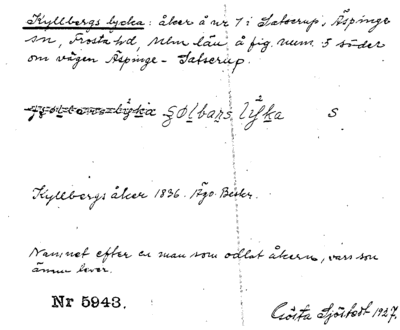 Kyllbergs lycka: åker å nr 7 i Satserup, Äspinge
sn, Frosta hd, Mlm län å fig. num. 5 söder
om vägen Äspinge - Satserup.
s
Kyllbergs åker 1836. Ägo. Beskr.
Namnet efter en man som odlat åkern, vars son
ännu lever.
Nr 5943.
Gösta Sjöstedt 1927.